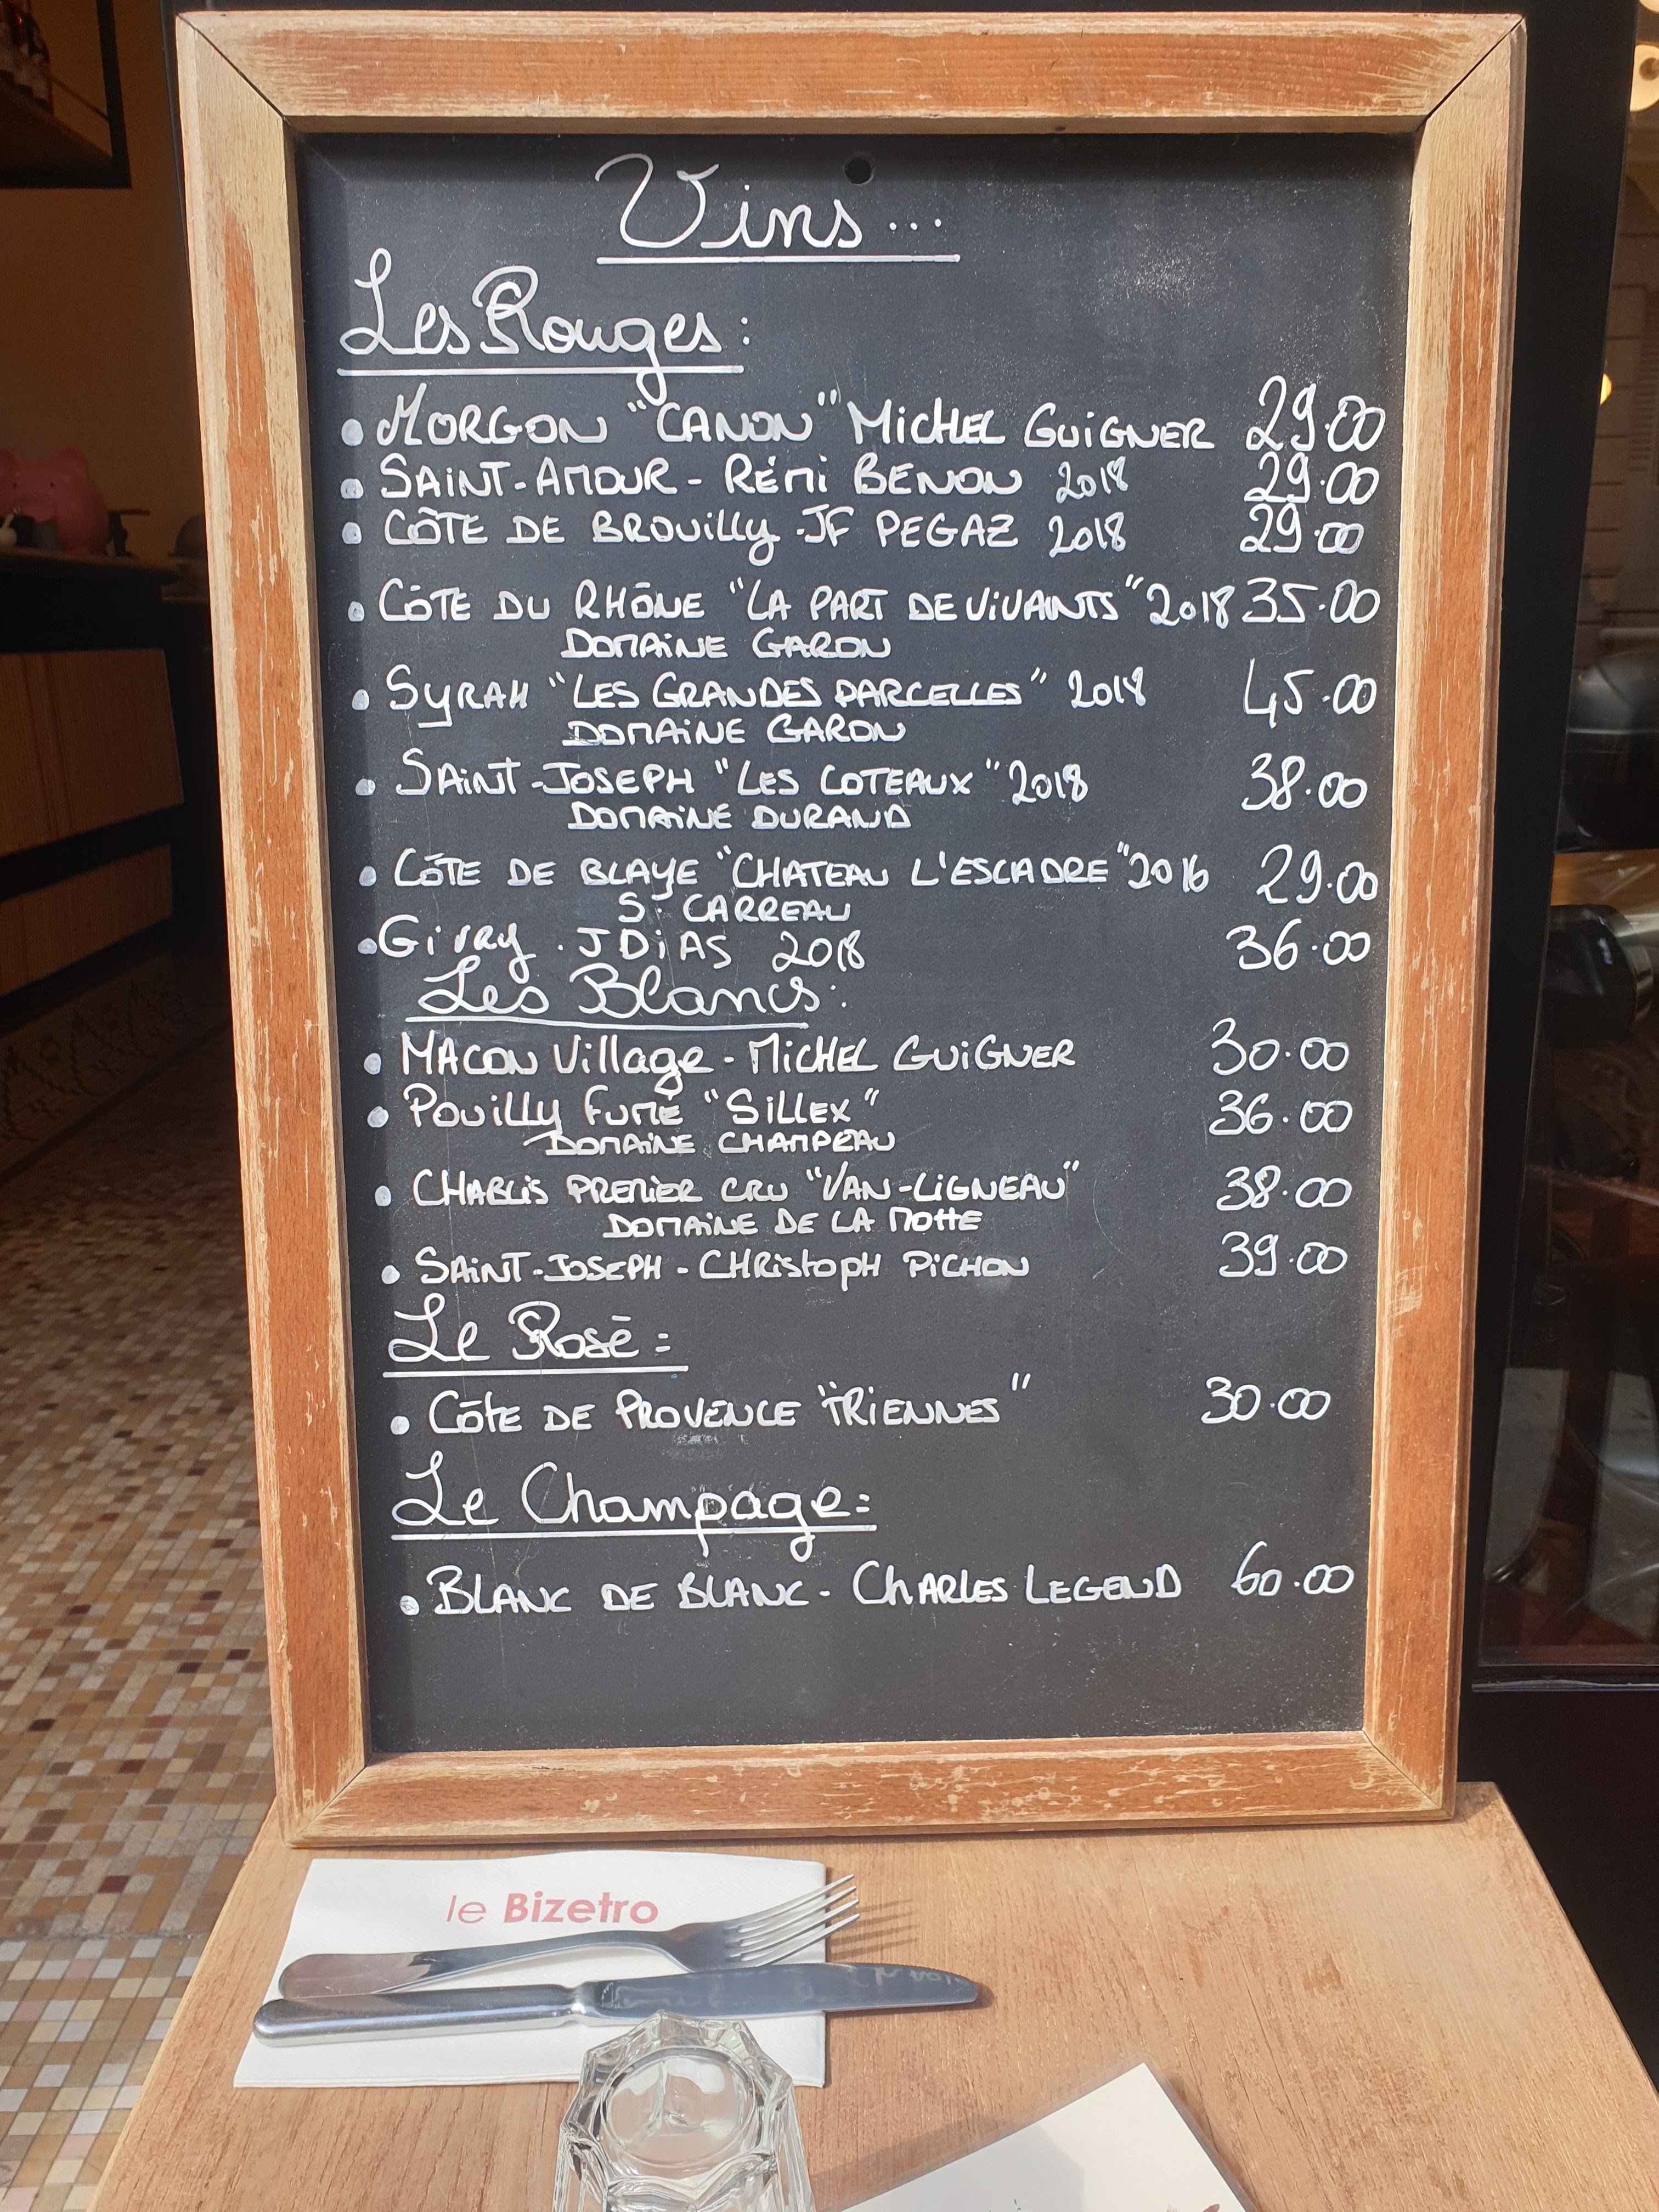 Vins...
Les Rouges:
• MORGON "CANON" MiCHEL GUiGNER 29.00
• SAiNT-AMOUR - RÉMi BENON 2018 29.00
• CÔTE DE BROUilly - JF PEGAZ 2018 29.00
• CÔTE DU RHÔNE "LA PART DE ViVANTS" 2018 35.00
DOMAiNE GARON
• SyRAH "LES GRANDES PARCELLES" 2018 45.00
DOMAiNE GARON
• SAiNT-JOSEPH "LES COTEAUX" 2018 38.00
DOMAiNE DURAND
• CÔTE DE BLAyE "CHATEAU L'ESCADRE" 2016 29.00
S. CARREAU
• Givry . J DiAS 2018 36.00
Les Blancs:
• MACON Village - MiCHEL GUiGNER 30.00
• POUilly FUMÉ "SiLLEX" 36.00
DOMAiNE CHAMPEAU
• CHABLiS PREMiER CRU "VAN-LiGNEAU" 38.00
DOMAiNE DE LA MOttE
• SAiNT-JOSEPH - CHRistopH PiCHON 39.00
Le Rosé:
• CÔtE DE PROVENCE "TRiENNES" 30.00
Le Champage:
• BLANC DE BLANC - ChARLES LEGEND 60.00
le Bizetro